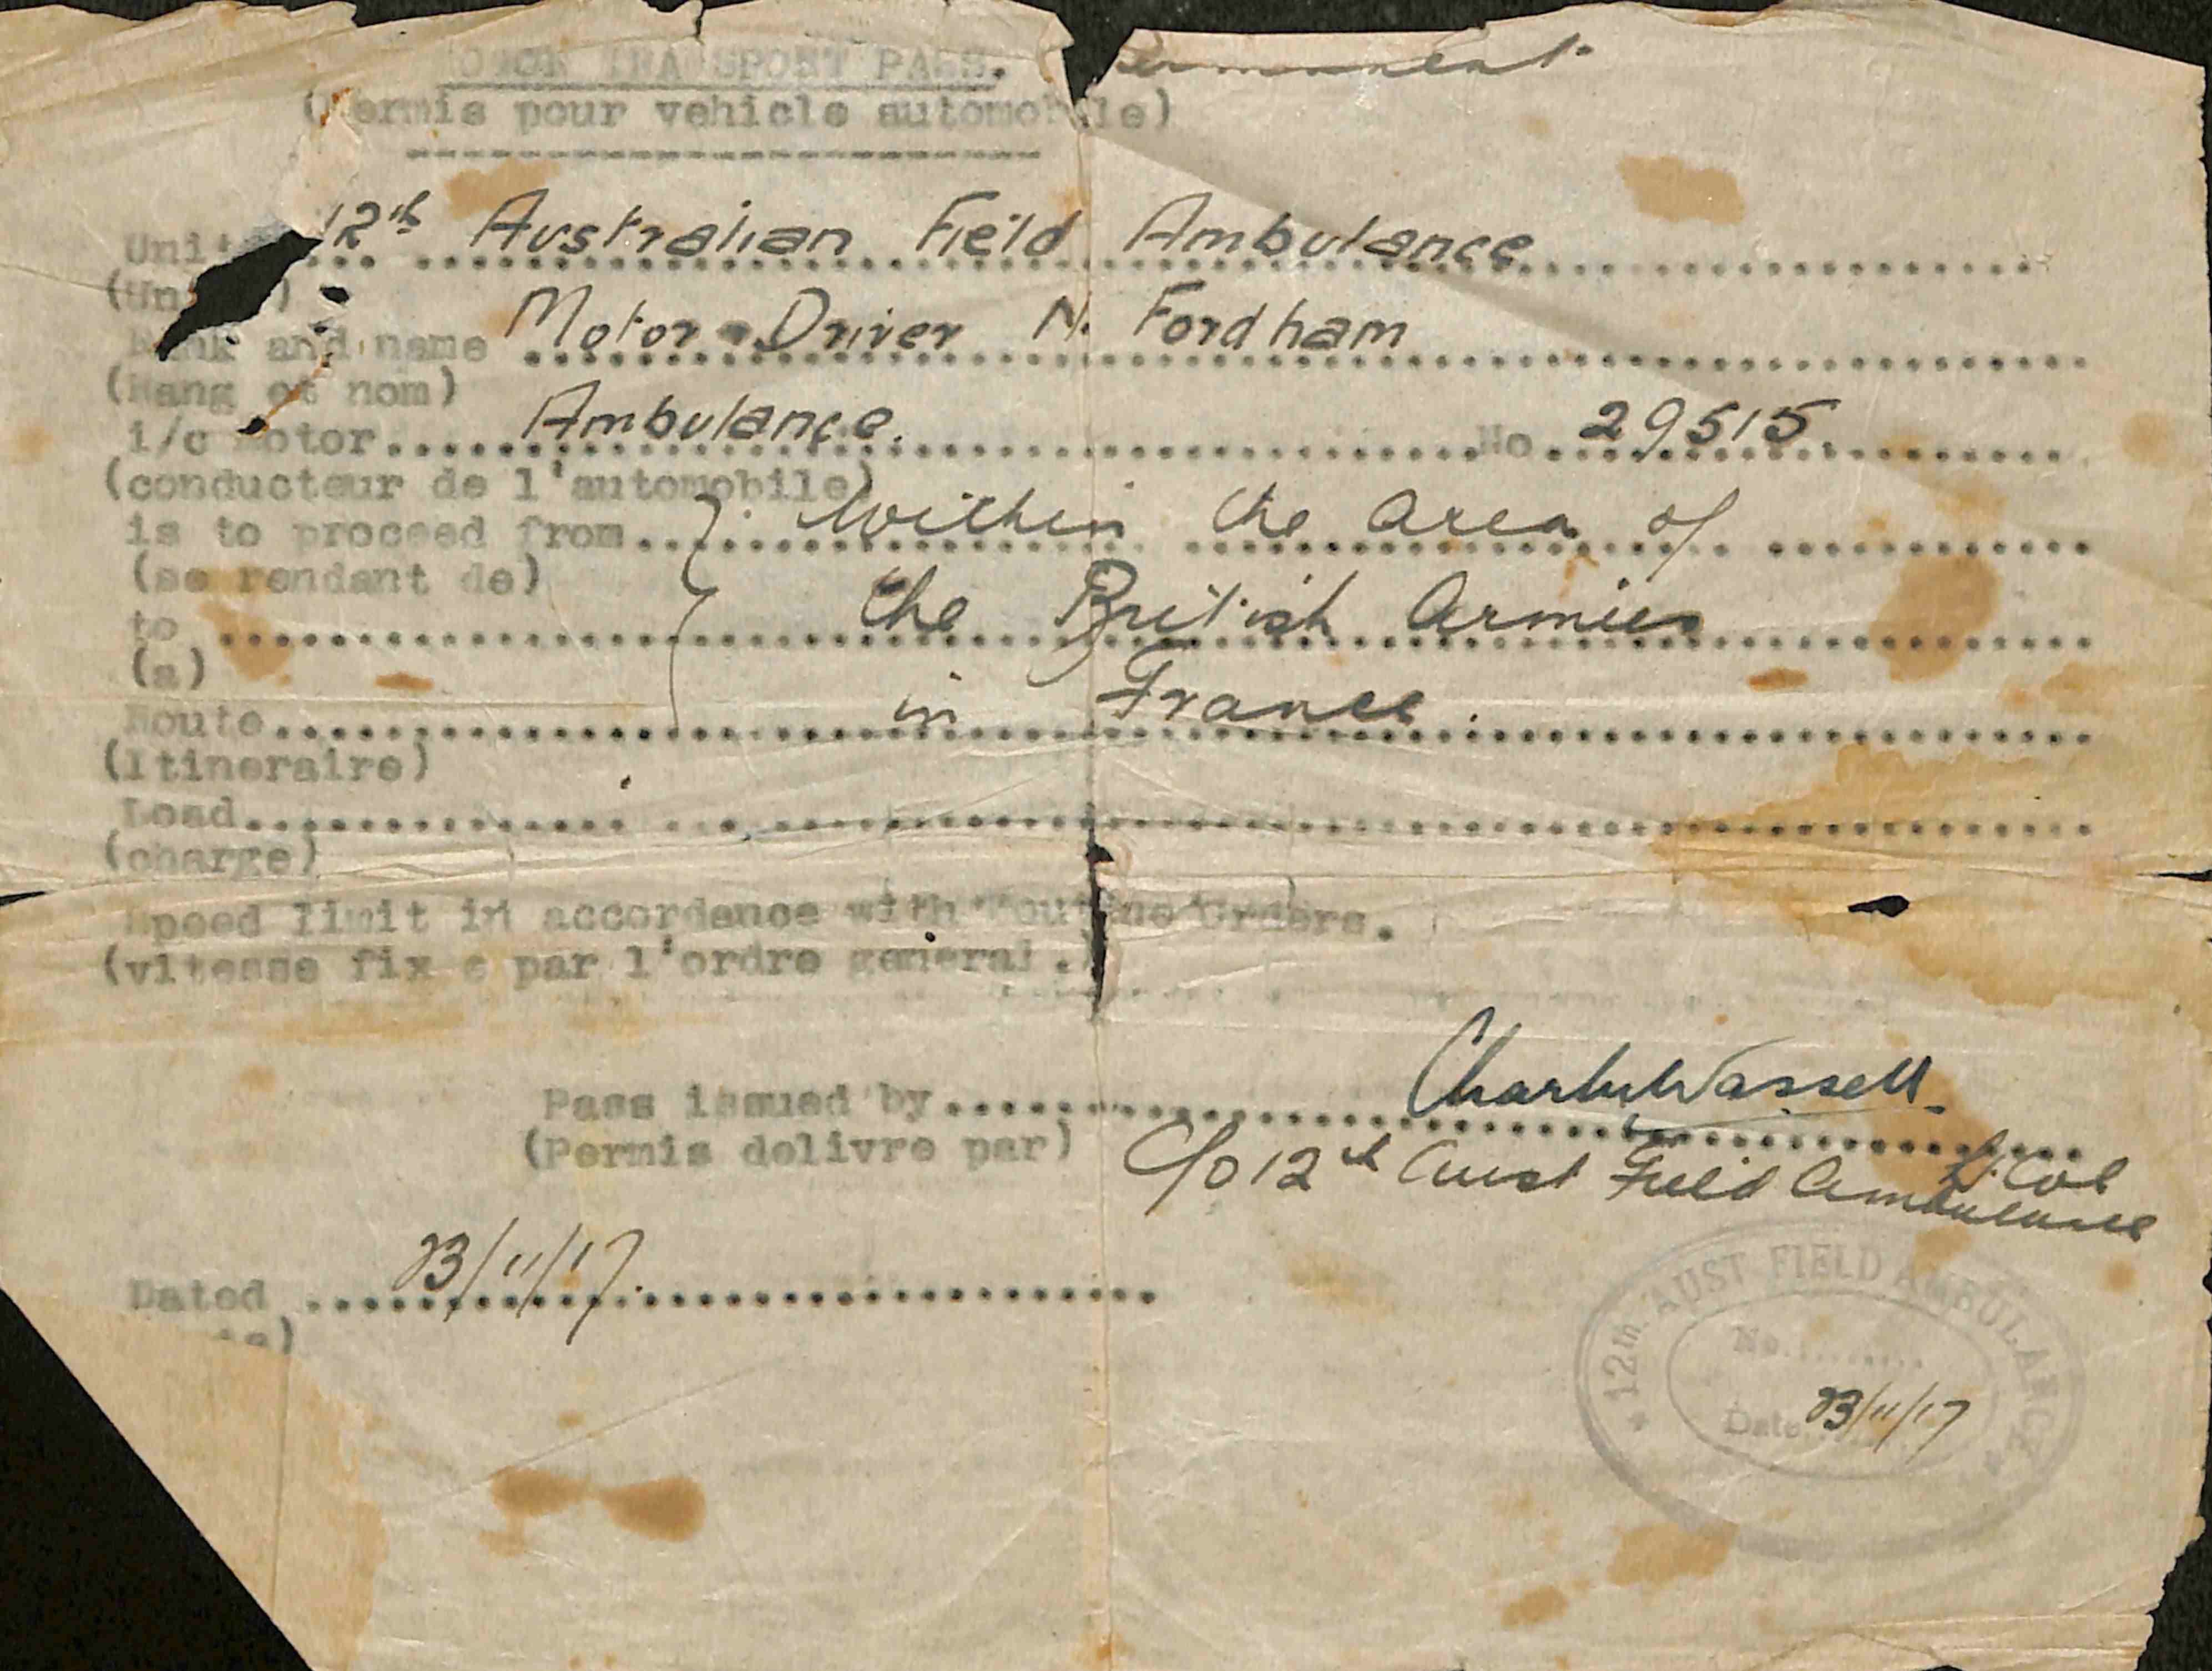 MOTOR TRANSPORT PASS. Permanent
(Permis pour vehicle automobile)
Unit 12th Australian Field Ambulance
(Unite)
Rank and name Motor-Driver N. Fordham
(Rang et nom)
i/c motor Ambulance. No 29515.
(conducteur de l'automobile)
is to proceed from } Within the area of
(se rendant de)
to the British Armies
(a)
Route in France.
(Itineraire)
Load
(charge)
Speed limit in accordance with Routine Orders.
(vitesse fixe par l'ordre general.)
Pass issued by Charles Wassell.
(Permis delivre par) Lt Col
C/o 12th Aust Field Ambulance
Dated 23/11/17.
12th. AUST FIELD AMBULANCE
No.
Date 23/11/17